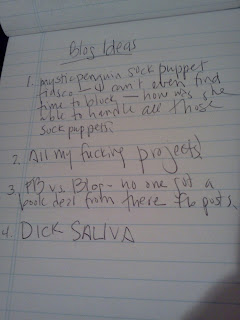 Blog Ideas
1. mysticpenguin sock puppet
fiasco - I can't even find
time to block - how was she
able to handle all those
sock puppets?
2. All my fucking projects
3. FB vs. Blog - no one got a
book deal from there FB posts.
4. DICK SALIVA